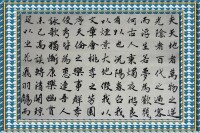 夫天地者萬物之逆旅
光陰者百代之過客
而浮生若夢為歡幾
何古人秉燭夜遊良
有以也況陽春召我
以煙景大塊假我以
文章會桃李之芳園
序天倫之樂事群季
俊秀皆為惠連吾人
詠歌獨慚康樂幽賞
未已高談轉清開瓊
筵以坐花飛羽觴而